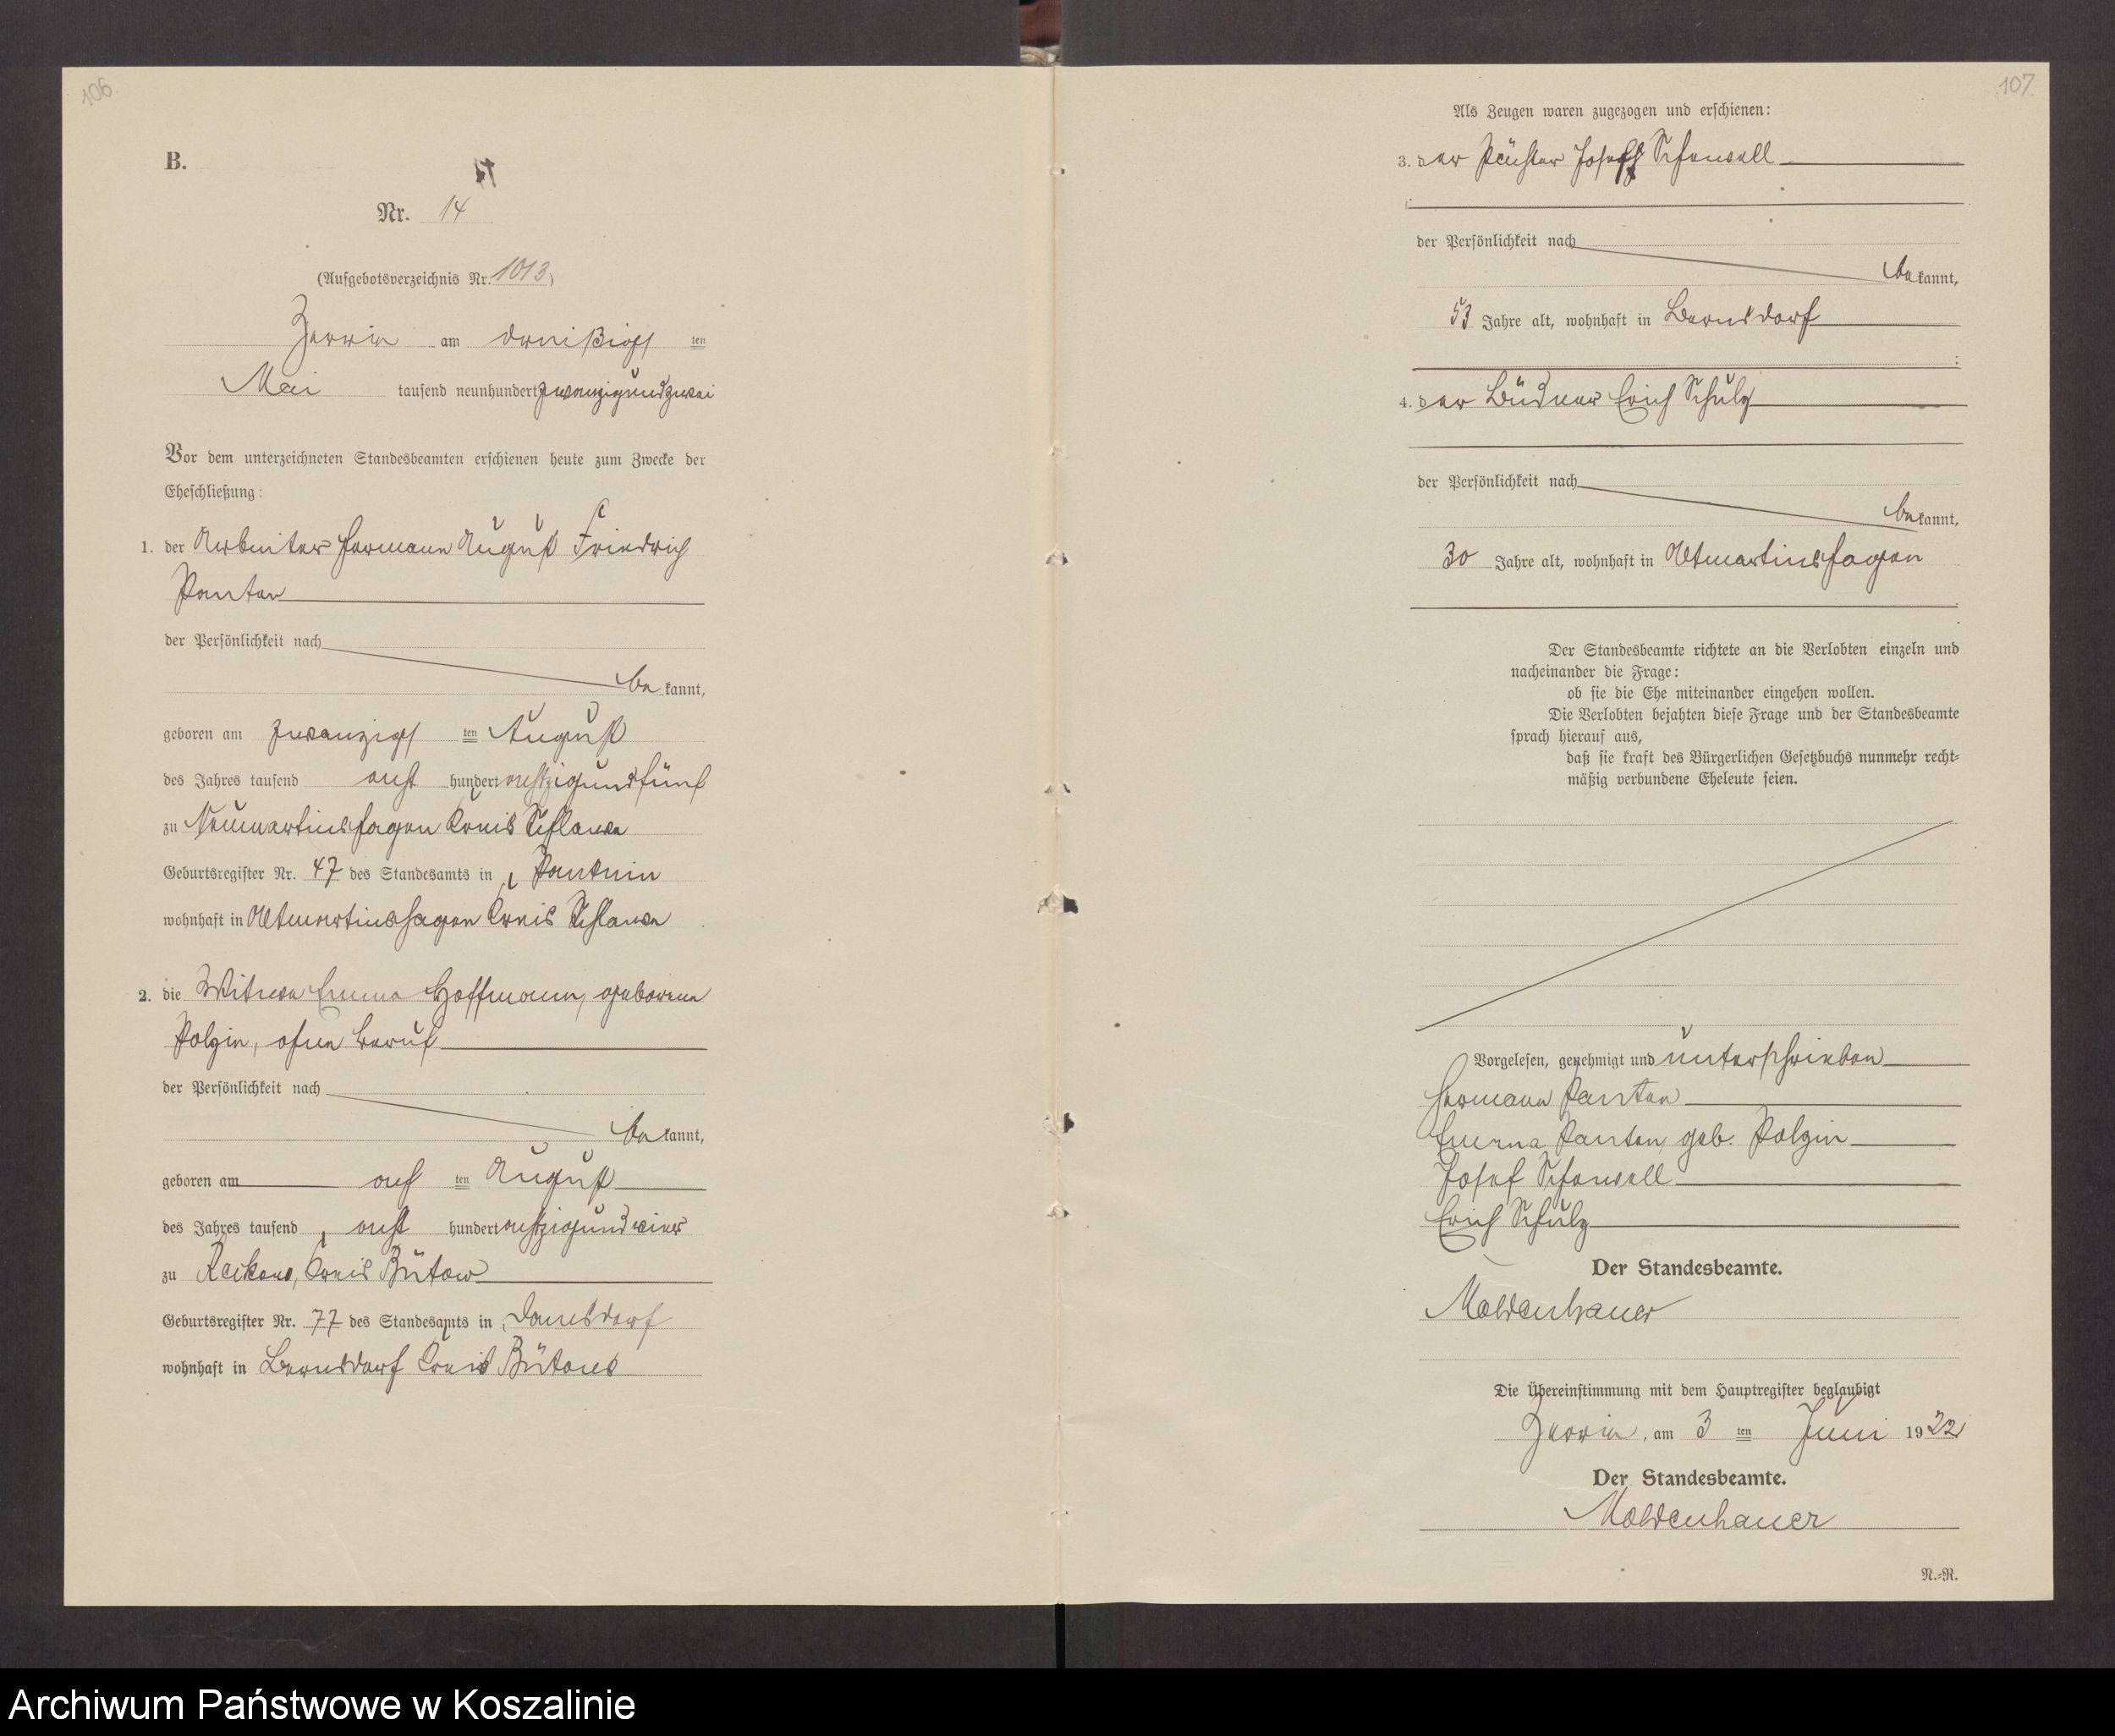 106.
B.
Nr. 14
(Aufgebotsverzeichnis Nr. 1013)
Zerrin am dreißigs ten
Mai tausend neunhundert zwanzigundzwei
Vor dem unterzeichneten Standesbeamten erschienen heute zum Zwecke der
Eheschließung:
1. der Arbeiter Hermann August Friedrich
Panten
der Persönlichkeit nach
be kannt,
geboren am zwanzigs ten August
des Jahres tausend acht hundert achtzigundfünf
zu Neumartinshagen Kreis Schlawe
Geburtsregister Nr. 47 des Standesamts in Panknin
wohnhaft in Altmartinshagen Kreis Schlawe
2. die Witwe Emma Hoffmann, geborene
Polzin, ohne Beruf
der Persönlichkeit nach
be kannt,
geboren am ach ten August
des Jahres tausend acht hundert achtzigundeiner
zu Reckow, Kreis Bütow
Geburtsregister Nr. 77 des Standesamts in Damsdorf
wohnhaft in Bernsdorf Kreis Bütow
107.
Als Zeugen waren zugezogen und erschienen:
3. der Pächter Josef Schewell
der Persönlichkeit nach
be kannt,
53 Jahre alt, wohnhaft in Bernsdorf
;
4. der Büdner Erich Schulz
der Persönlichkeit nach
be kannt,
30 Jahre alt, wohnhaft in Altmartinshagen
.
Der Standesbeamte richtete an die Verlobten einzeln und
nacheinander die Frage:
ob sie die Ehe miteinander eingehen wollen.
Die Verlobten bejahten diese Frage und der Standesbeamte
sprach hierauf aus,
daß sie kraft des Bürgerlichen Gesetzbuchs nunmehr recht-
mäßig verbundene Eheleute seien.
Vorgelesen, genehmigt und unterschrieben
Hermann Panten
Emma Panten, geb. Polzin
Josef Schewell
Erich Schulz
Der Standesbeamte.
Moldenhauer
Die Übereinstimmung mit dem Hauptregister beglaubigt
Zerrin, am 3 ten Juni 1922
Der Standesbeamte.
Moldenhauer
N.-R.
Archiwum Państwowe w Koszalinie